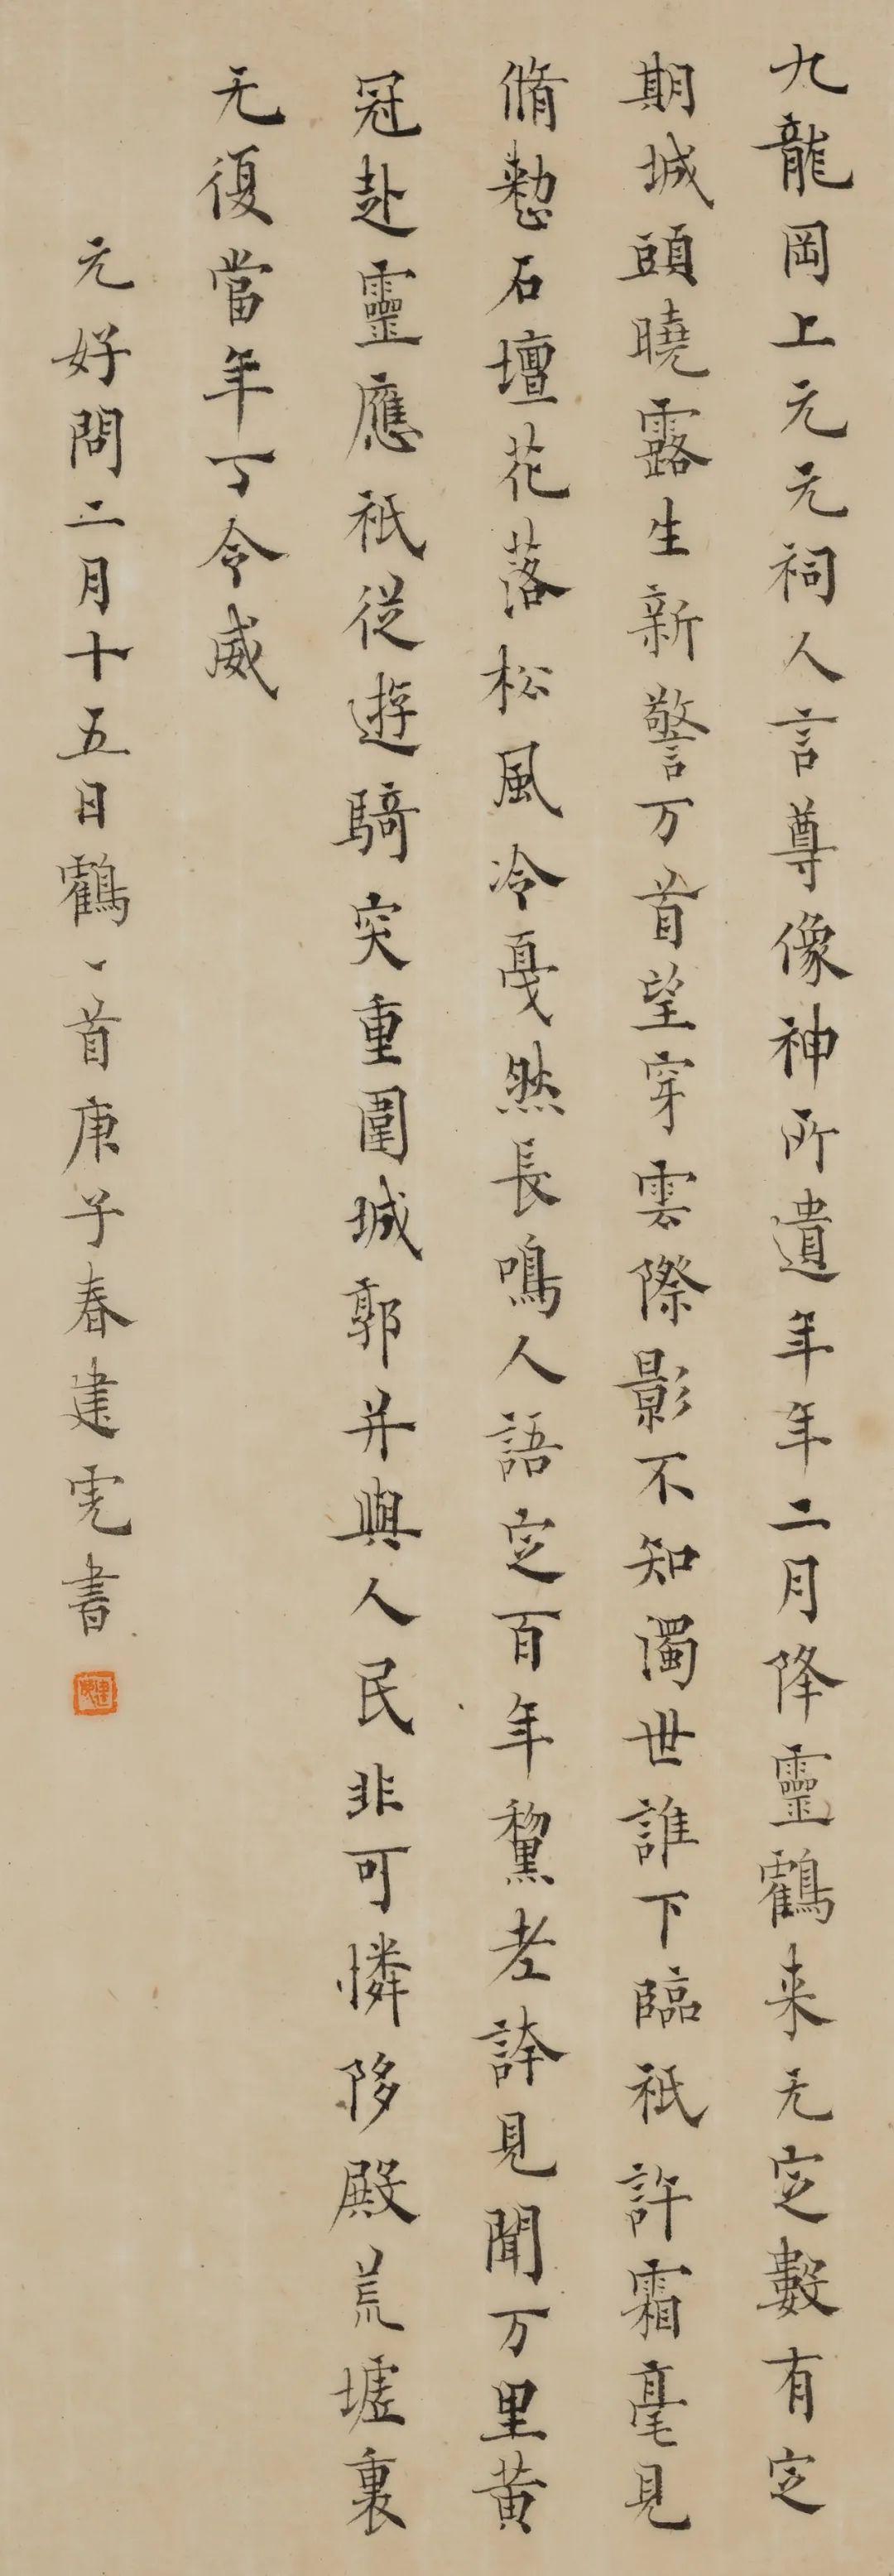 九龍岡上元元祠人言尊像神所遺年年二月降靈鶴来无定數有定
期城頭曉露生新警万首望穿雲際影不知濁世誰下臨祇許霜毫見
脩整石壇花落松風冷戛然長鳴人語定百年黧老誇見聞万里黄
冠赴靈應祇従遊騎突重圍城郭并與人民非可憐陊殿荒墟裏
无復當年丁令威
元好問二月十五日鶴一首庚子春建霓書